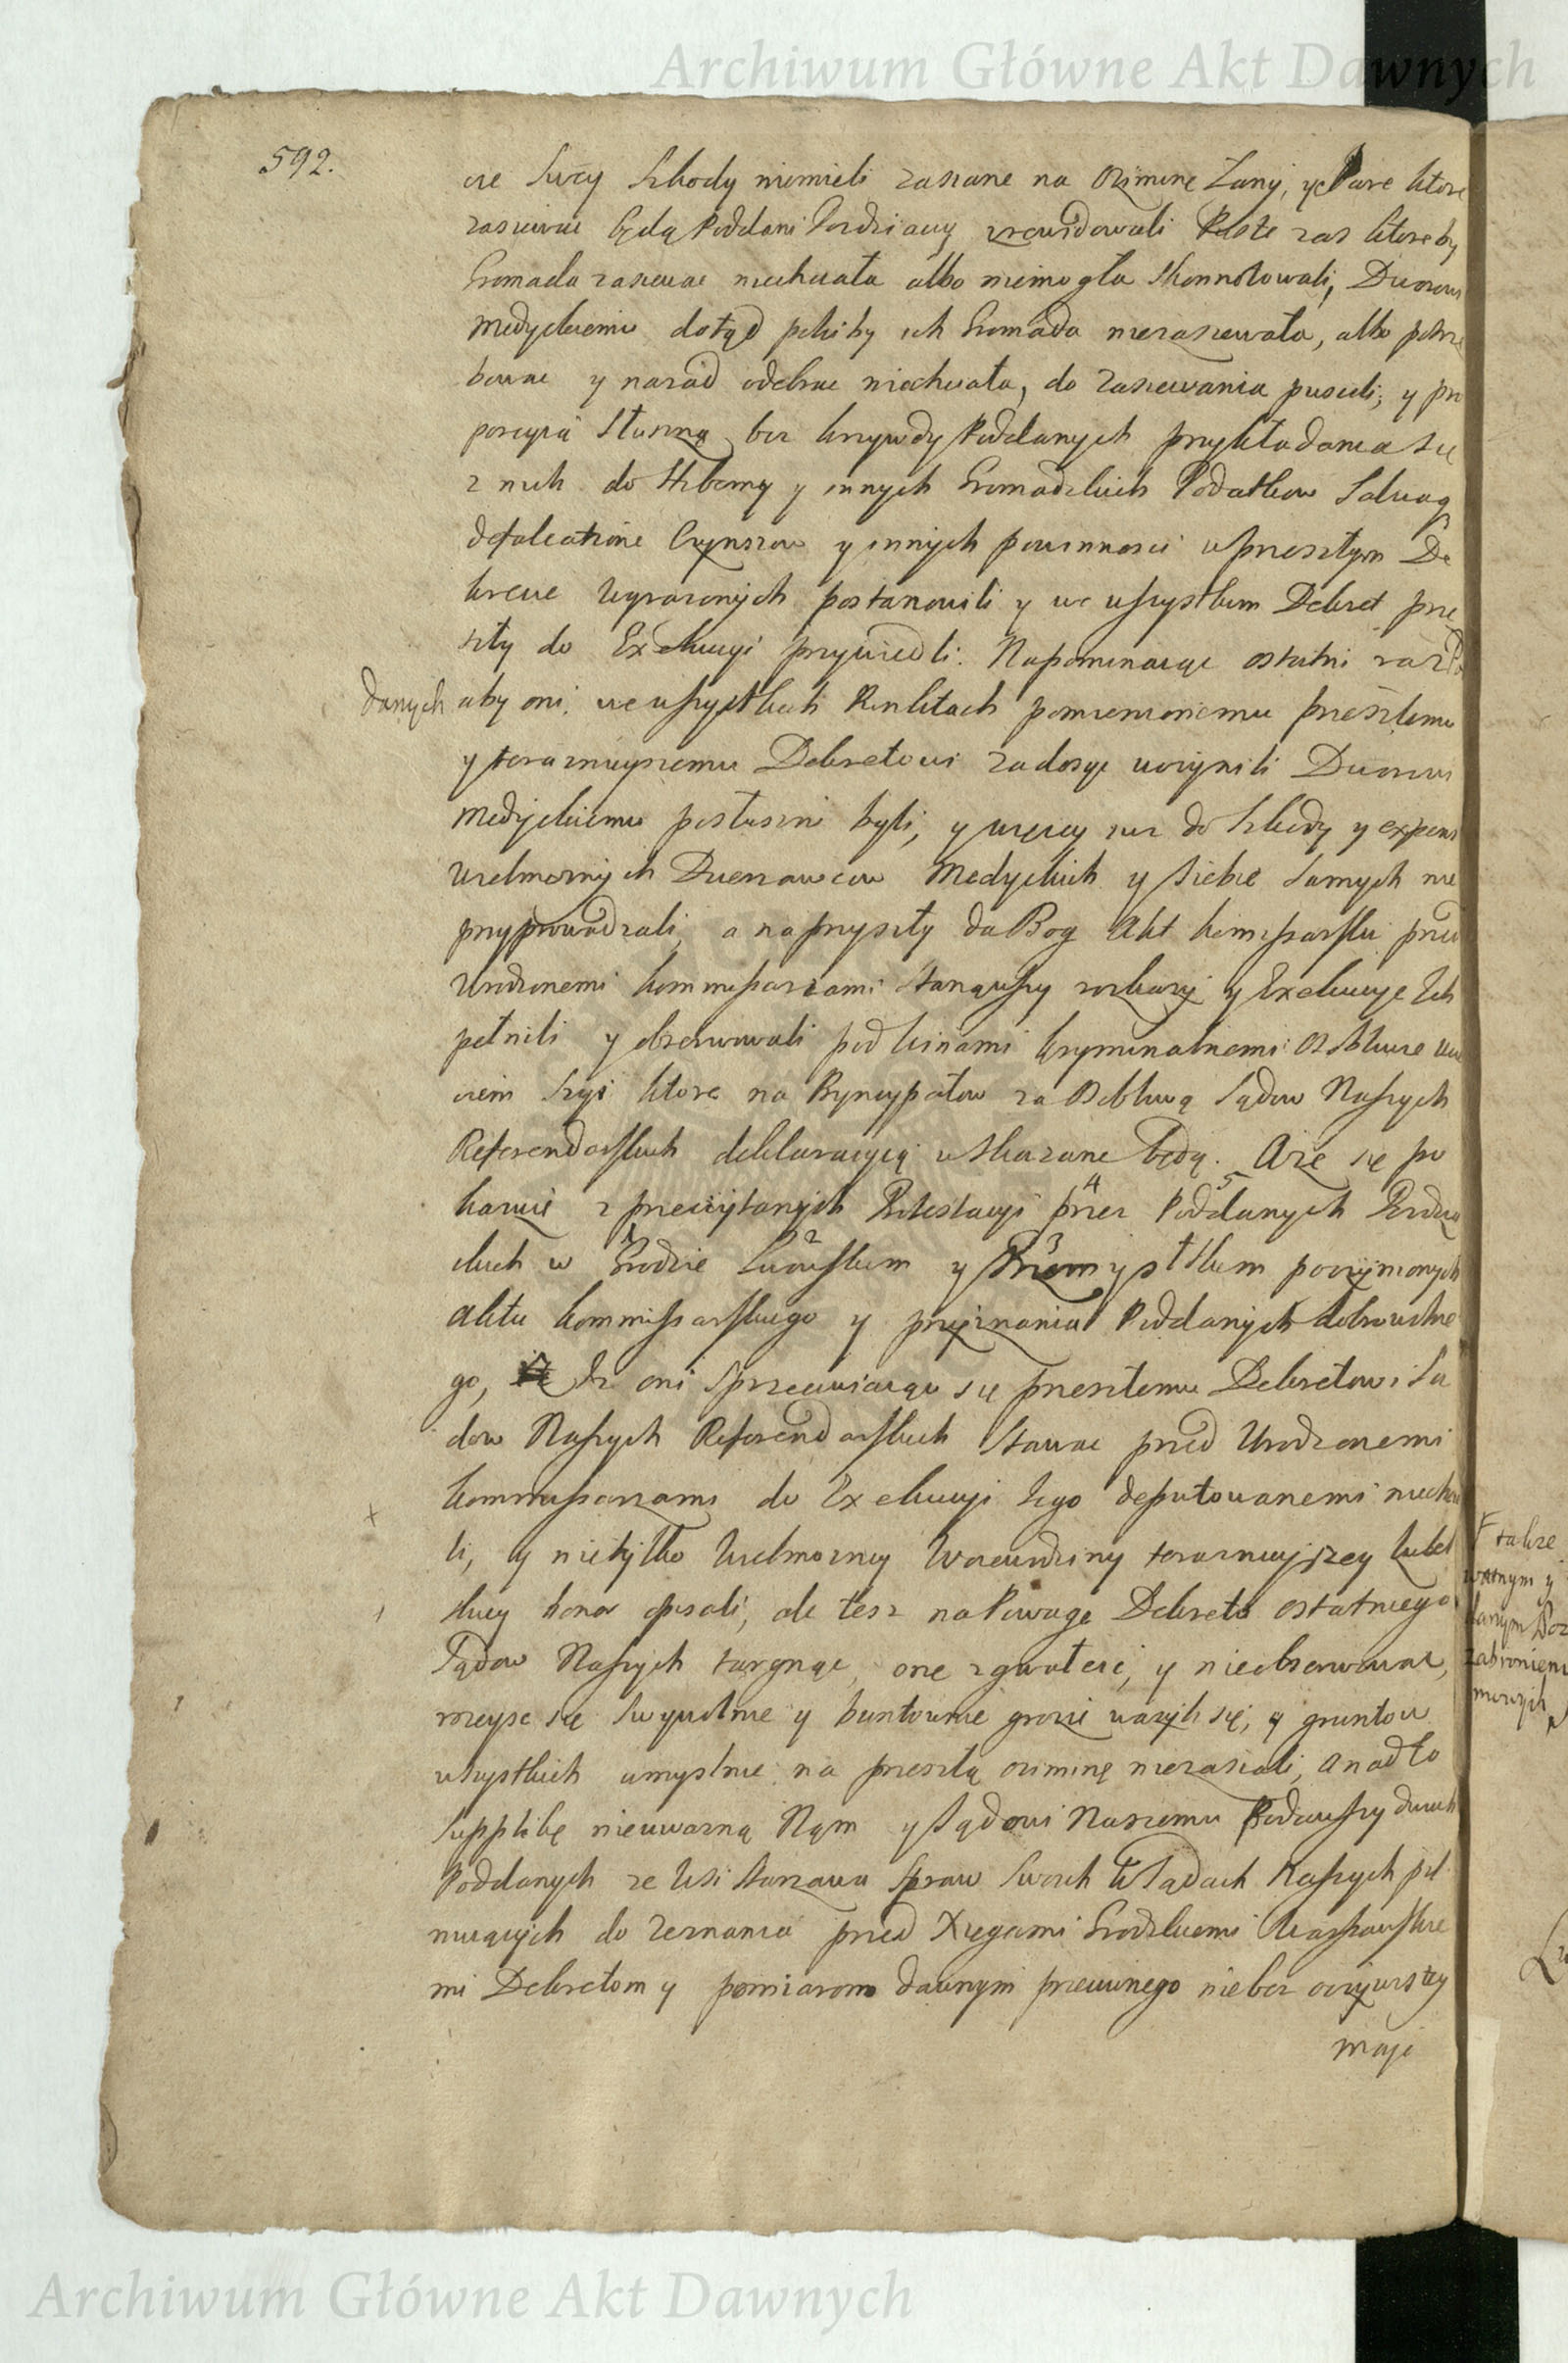 Archiwum Główne Akt Dawnych
592.
cie swey szkody niemieli zasiane na Ozimine Łany, y Pare ktore
zasiewac będą Poddani zrewidowali Puste zas ktoreby
Gromada zasiewac niechciała albo niemogła skonnotowali, Dworowi
Medyckiemu dotąd pokiby ich Gromada niezasiewała, albo potrze
bowac y nazad odebrac niechciała, do zasiewania puscili; y pro
porcyią słuszną bez krzywdy Poddanych przykładania się
z nich do Hyberny y innych Gromadzkich Podatkow Salvaq
defalcatione Czynszow y innych powinnosci w przeszłym De
krecie wyrazonych postanowili y we wszystkim Dekret prze
szły do Exekucyi przywiedli. Napominaiąc ostatni raz Po
danych aby oni we wszystkich Punktach pomienionemu przeszłemu
y teraznieyszemu Dekretowi zadosyc uczynili Dworowi
Medyckiemu posłuszni byli, y więcey iuz do szkody y expens
Wielmoznych Dzierzawcow Medyckich y siebie samych nie
przyprowadzali, a na przyszły da Bog Akt kommissarski przed
Urodzonemi kommissarzami stanąwszy rozkazy y Exekucye Ich
pełnili y obserwowali pod winami kryminalnemi
ciem szyi ktore na Pryncypałow za Sądow Naszych
Referendarskich deklaracyią wskazane będą. A ze się po
kazuie z przeczytanych Protestacyi przez Poddanych
4 5
ckich w Grodzie Lwowskim y Przemyslskim poczynionych
1 2 3
aktu kommissarskiego y przyznania Poddanych dobrowolne
go, Iz oni sprzeciwiaiąc się przeszłemu Dekretowi Są
dow Naszych Referendarskich stawac przed Urodzonemi
kommissarzami do Exekucyi tego deputowanemi niechcie
li, y nietylko Wielmozney Woiewodziny teraznieyszey Lubel
skiey honor opisali, ale tesz na Powagę Dekretu ostatniego
Sądow Naszych targnąc, one zgwałcic, y nieobserwowac,
rozeysc się swywolnie y buntownie grozic wazyli się, y gruntow
wszystkich umyslnie na przeszłą oziminę niezasiali, a nadto
supplikę nieuwazną Nam y Sądowi Naszemu Podawszy dwuch
Poddanych ze Wsi Starzawa spraw swoich w Sądach Naszych pil
nuiących do zeznania przed Xięgami Grodzkiemi Warszawskie
mi Dekretom y pomiarom dawnym przeciwnego niebez oczywistey
maji
takze
Archiwum Główne Akt Dawnych